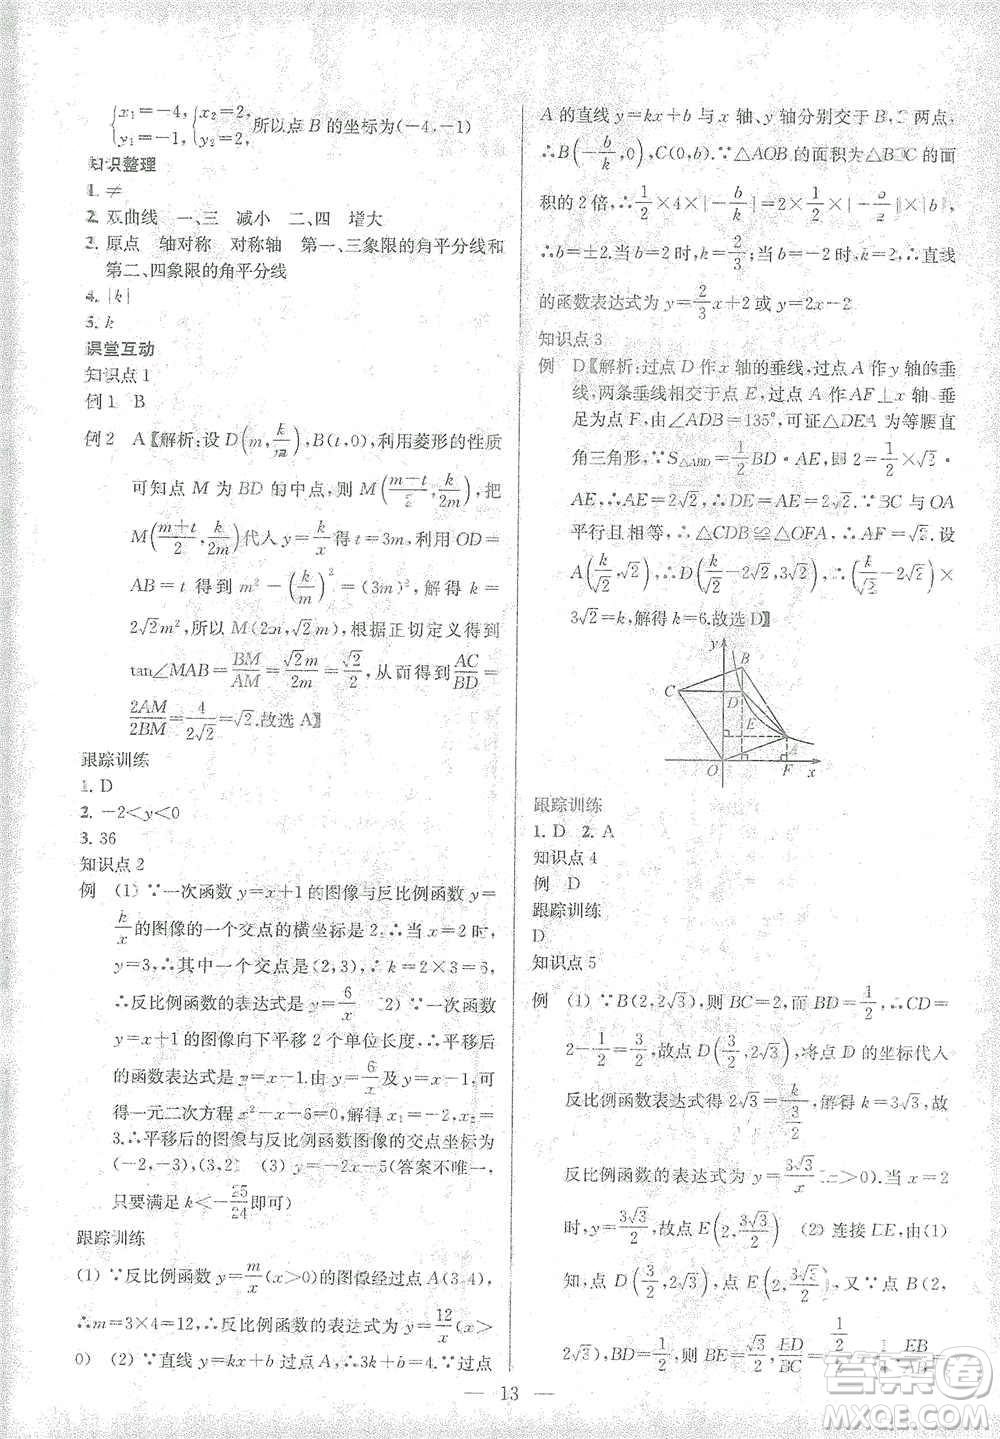 {x₁=-4, y₁=-1, {x₂=2, y₂=2, 所以点 B 的坐标为(-4,-1)
知识整理
1. ≠
2. 双曲线 一、三 减小 二、四 增大
3. 原点 轴对称 对称轴 第一、三象限的角平分线和
第二、四象限的角平分线
4. |k|
5. k
课堂互动
知识点 1
例 1 B
例 2 A〖解析:设 D(m, k/m), B(t,0), 利用菱形的性质
可知点 M 为 BD 的中点, 则 M((m-t)/2, k/2m), 把
M((m+t)/2, k/2m)代人 y=k/x 得 t=3m, 利用 OD=
AB=t 得到 m²-(k/m)²=(3m)², 解得 k=
2√2m², 所以 M(2m, √2m), 根据正切定义得到
tan∠MAB=BM/AM=√2m/2m=√2/2, 从而得到 AC/BD=
2AM/2BM=4/2√2=√2. 故选 A〗
跟踪训练
1. D
2. -2<y<0
3. 36
知识点 2
例 (1) ∵一次函数 y=x+1 的图像与反比例函数 y=
k/x 的图像的一个交点的横坐标是 2, ∴当 x=2 时,
y=3, ∴其中一个交点是(2,3). ∴k=2×3=6.
∴反比例函数的表达式是 y=6/x (2) ∵一次函数
y=x+1 的图像向下平移 2 个单位长度, ∴平移后
的函数表达式是 y=x-1. 由 y=x-1 及 y=6/x, 可
得一元二次方程 x²-x-6=0, 解得 x₁=-2, x₂=
3. ∴平移后的图像与反比例函数图像的交点坐标为
(-2,-3),(3,2) (3) y=-2x-5(答案不唯一,
只要满足 k<-25/24 即可)
跟踪训练
(1) ∵反比例函数 y=m/x(x>0)的图像经过点 A(3,4),
∴m=3×4=12, ∴反比例函数的表达式为 y=12/x(x>
0) (2) ∵直线 y=kx+b 过点 A, ∴3k+b=4. ∵过点
A 的直线 y=kx+b 与 x 轴、y 轴分别交于 B、C 两点,
∴B(-b/k,0), C(0,b). ∵△AOB 的面积为△BOC 的面
积的 2 倍, ∴1/2×4×|-b/k|=2×1/2×|-b/k|×|b|,
∴b=±2. 当 b=2 时, k=2/3; 当 b=-2 时, k=2, ∴直线
的函数表达式为 y=2/3x+2 或 y=2x-2
知识点 3
例 D〖解析:过点 D 作 x 轴的垂线, 过点 A 作 y 轴的垂
线, 两条垂线相交于点 E, 过点 A 作 AF⊥x 轴, 垂
足为点 F, 由∠ADB=135°, 可证△DEA 为等腰直
角三角形, ∵S△ABD=1/2BD·AE=1/2×√2·
AE, ∴AE=2√2, ∴DE=AE=2√2. ∵BC 与 OA
平行且相等, ∴△CDB≌△OFA, ∴AF=√2. 设
A(k/√2,√2), D(k/√2-2√2,3√2), ∴(k/√2-2√2)×
3√2=k, 解得 k=6. 故选 D〗
y
B
C
D
E
A
O
F
x
跟踪训练
1. D 2. A
知识点 4
例 D
跟踪训练
D
知识点 5
例 (1) ∵B(2,2√3), 则 BC=2, 而 BD=1/2, ∴CD=
2-1/2=3/2, 故点 D(3/2,2√3), 将点 D 的坐标代入
反比例函数表达式得 2√3=k/(3/2), 解得 k=3√3, 故
反比例函数的表达式为 y=3√3/x(x>0). 当 x=2
时, y=3√3/2, 故点 E(2,3√3/2) (2) 连接 DE, 由(1)
知, 点 D(3/2,2√3), 点 E(2,3√3/2), 又∵点 B(2,
2√3), ∴BD=1/2, BE=√3/2, ∴BD/BC=(1/2)/2=1/4, EB/AB=
13
答案圈
MXQE.COM